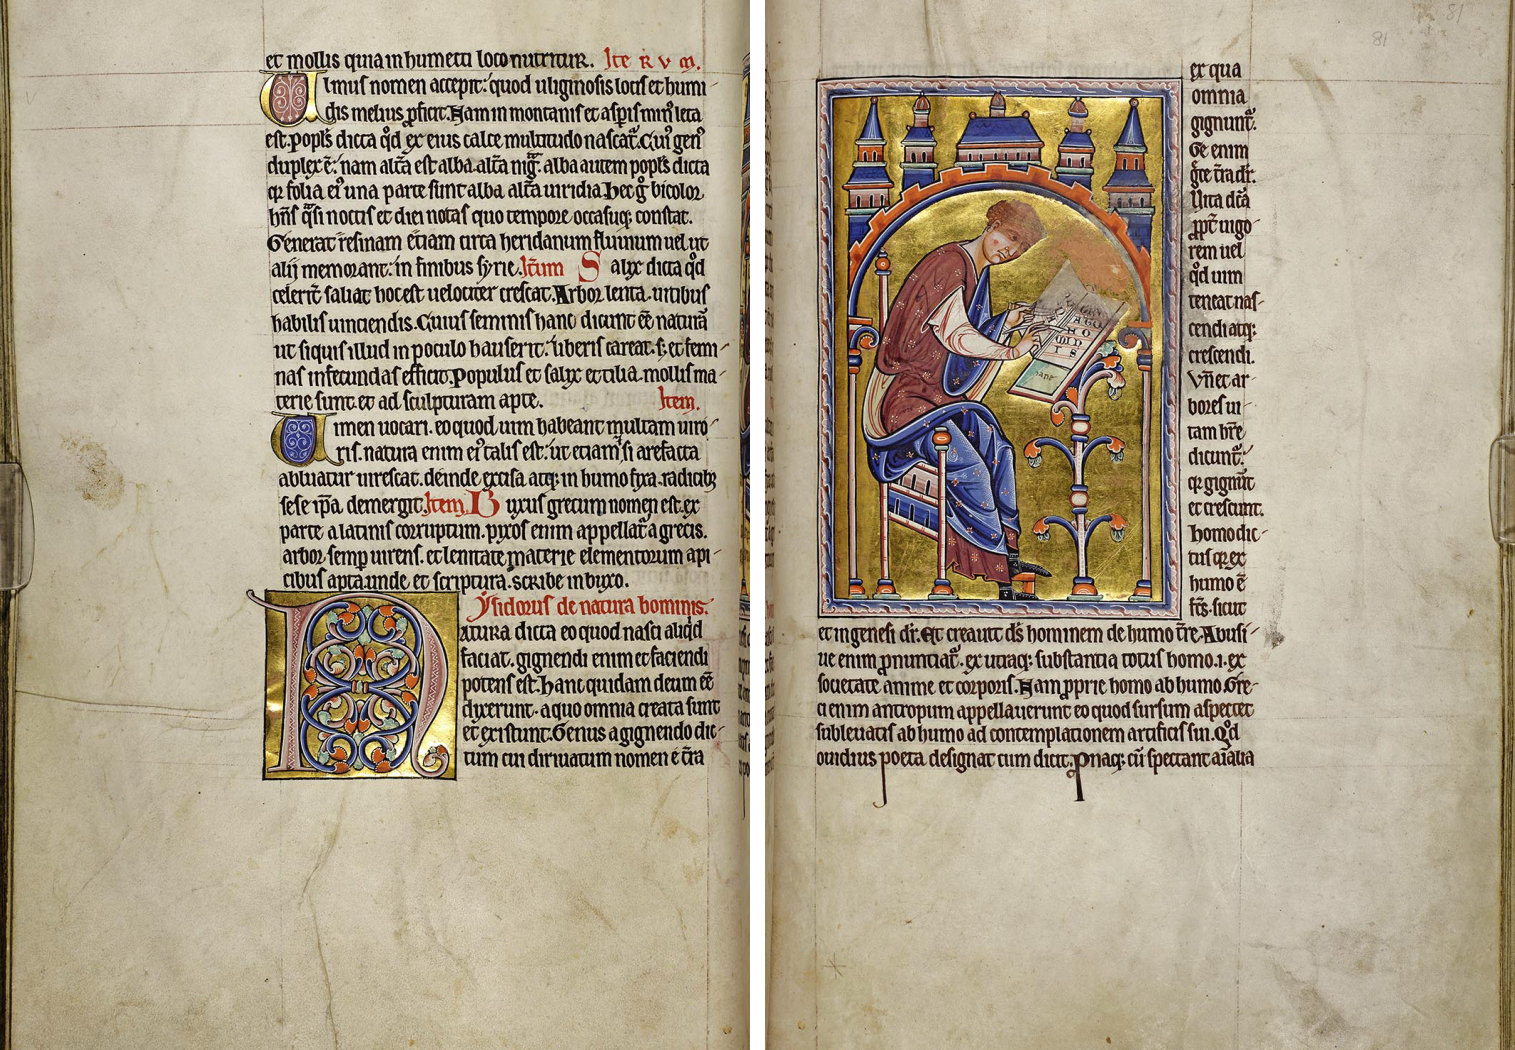 et mollis quia in humecti loco nutritur. Ite r v m.
Vlmus nomen accepit: quod uliginosis locis et humi-
dis melius ꝓficit. Nam in montanis et asp̱is min᷒ leta
est. Popul᷒ dicta q̊d ex eius calce multitudo nascat᷑. Cui᷒ gen᷒
duplex ē: nam alt̄a est alba. alt̄a nigͣ. alba autem popul᷒ dicta
qꝛ folia ei᷒ una parte sunt alba alt̄a uiridia Hec g̊ bicolor
hn̄s qͣsi noctis et diei notas quo tempore occasuqꝫ constat.
Generat resinam etiam circa heridanum fluuium uel ut
alij memorant: in finibus syrie. It̄um Salix dicta q̊d
celerit᷑ saliat hoc est uelociter crescat. Arbor lenta. uitibus
habilis uinciendis. Cuius seminis hanc dicunt eē naturā
ut siquis illud in poculo hauserit: liberis careat. s; et femi-
nas infecundas efficit. Populus et salix et tilia. mollis ma-
terie sunt. et ad sculpturam apte. Item.
Vimen uocari. eo quod uim habeant multam uiro-
ris. natura enim ei᷒ talis est: ut etiam si arefacta
abluatur uirescat. deinde excisa atqꝫ in humo fixa. radicibꝫ
sese ip̄a demergit. Item. Buxus grecum nomen est. ex
parte a latinis corruptum. pyxos enim appellat᷑ a grecis.
arbor semp̱ uirens. et lenitate materie elementorum api-
cibus apta. unde et scriptura. Scribe in buxo.
Ysidorus de natura hominis.
Natura dicta eo quod nasci aliq̊d
faciat. gignendi enim et faciendi
potens est. Hanc quidam deum eē
dixerunt. a quo omnia creata sunt
et existunt. Genus a gignendo dic-
tum cui diriuatum nomen ē t̄ra
81
81
ex qua
omnia
gignunt᷑.
Ge enim
g̊te t̄ra dr̄.
Vita dc̄a
ꝓpt̄ uigo
rem uel
q̊d uim
teneat nas-
cendi atqꝫ
crescendi.
Vn̄ et ar-
bores ui-
tam hr̄e
dicunt᷑:
qꝛ gignūt᷑
et crescunt.
Homo dic-
tus qꝛ ex
humo ē
fc̄s. sicut
et in genesi dr̄. Et creauit dˢ hominem de humo t̄re. Abusi-
ue enim ꝓnunciat᷑. ex utraqꝫ substantia totus homo .i. ex
societate anime et corporis. Nam ꝓprie homo ab humo. Gre-
ci enim antropum appellauerunt eo quod sursum aspectet
subleuatus ab humo ad contemplationem artificis sui. Q̊d
ouidius poeta designat cum dicit. Pnaqꝫ cū spectant aīalia